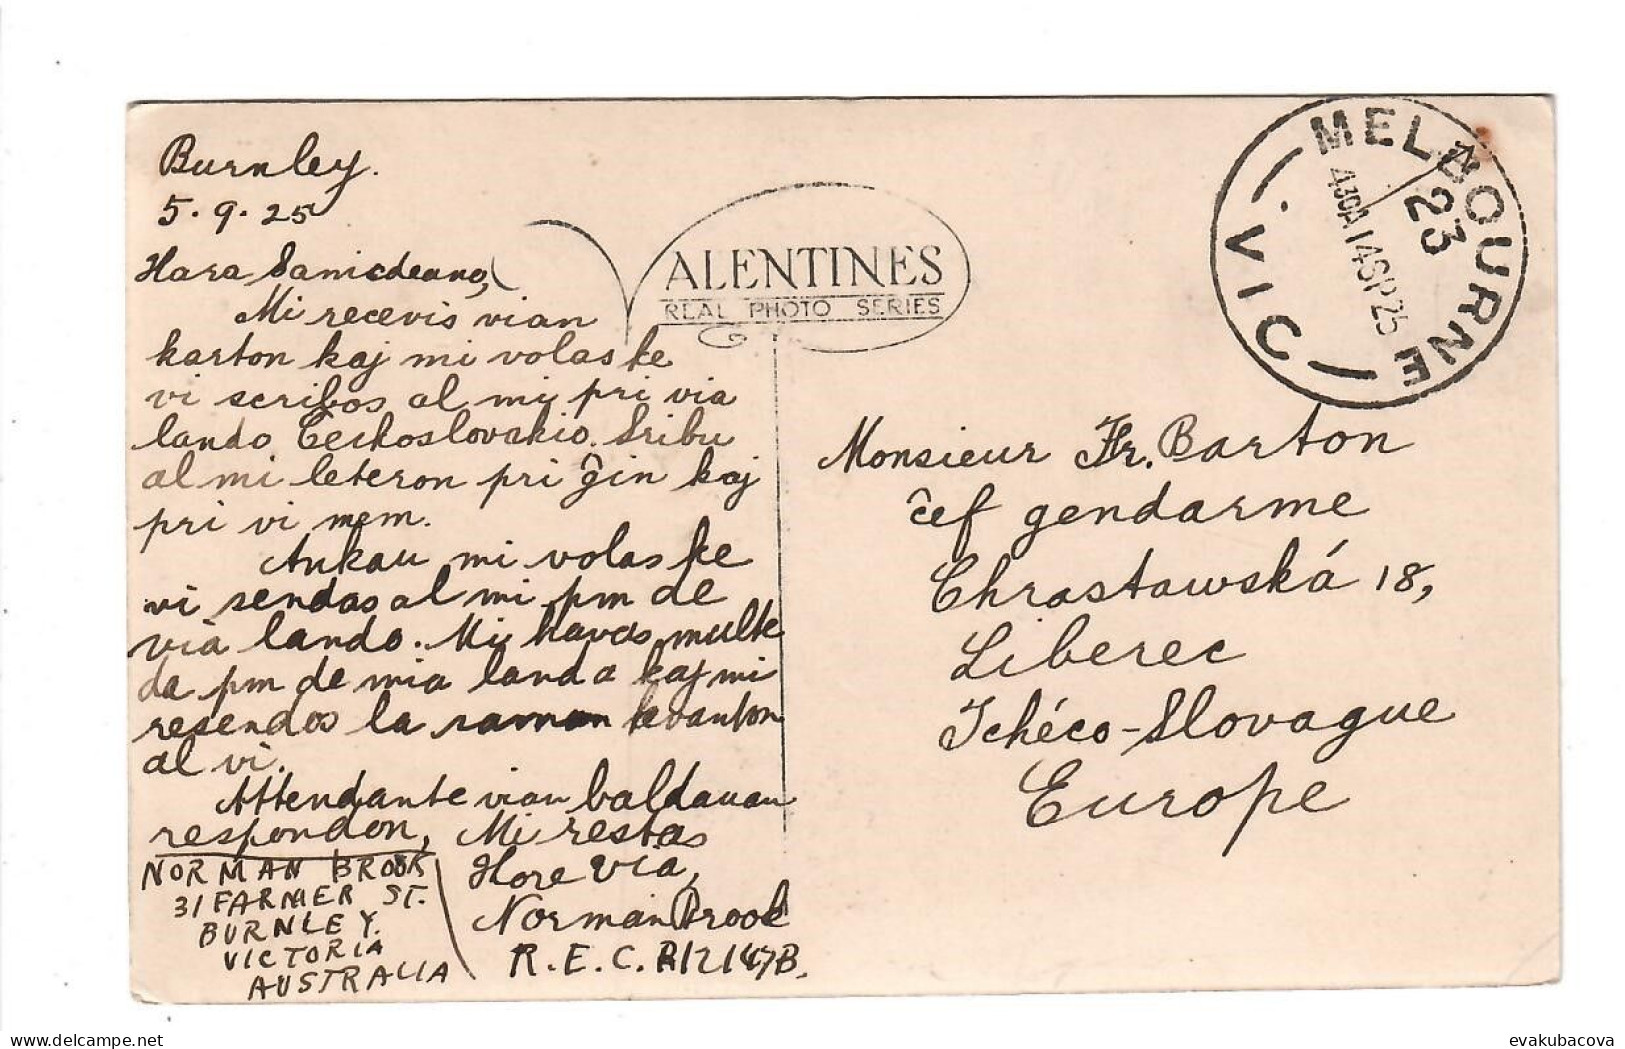 Burnley.
5.9.25
Kara Samideano,
Mi recevis vian
karton kaj mi volas ke
vi scribos al mi pri via
lando Cechoslovakio. Sribu
al mi leteron pri ĝin kaj
pri vi mem.
Ankau mi volas ke
vi sendas al mi pm de
via lando. Mi havas multe
da pm de mia lando kaj mi
resendos la saman kvanton
al vi.
Attendante vian baldauan
respondon, Mi restas
Kore via,
Norman Brook
R.E.C.
NORMAN BROOK
31 FARMER ST.
BURNLEY.
VICTORIA
AUSTRALIA
VALENTINES
REAL PHOTO SERIES
MELBOURNE
23
430A 14SP25
VIC
Monsieur Fr. Barton
ĉef gendarme
Chrastawská 18,
Liberec
Tchéco-Slovaque
Europe
delcampe.net
evakubacova